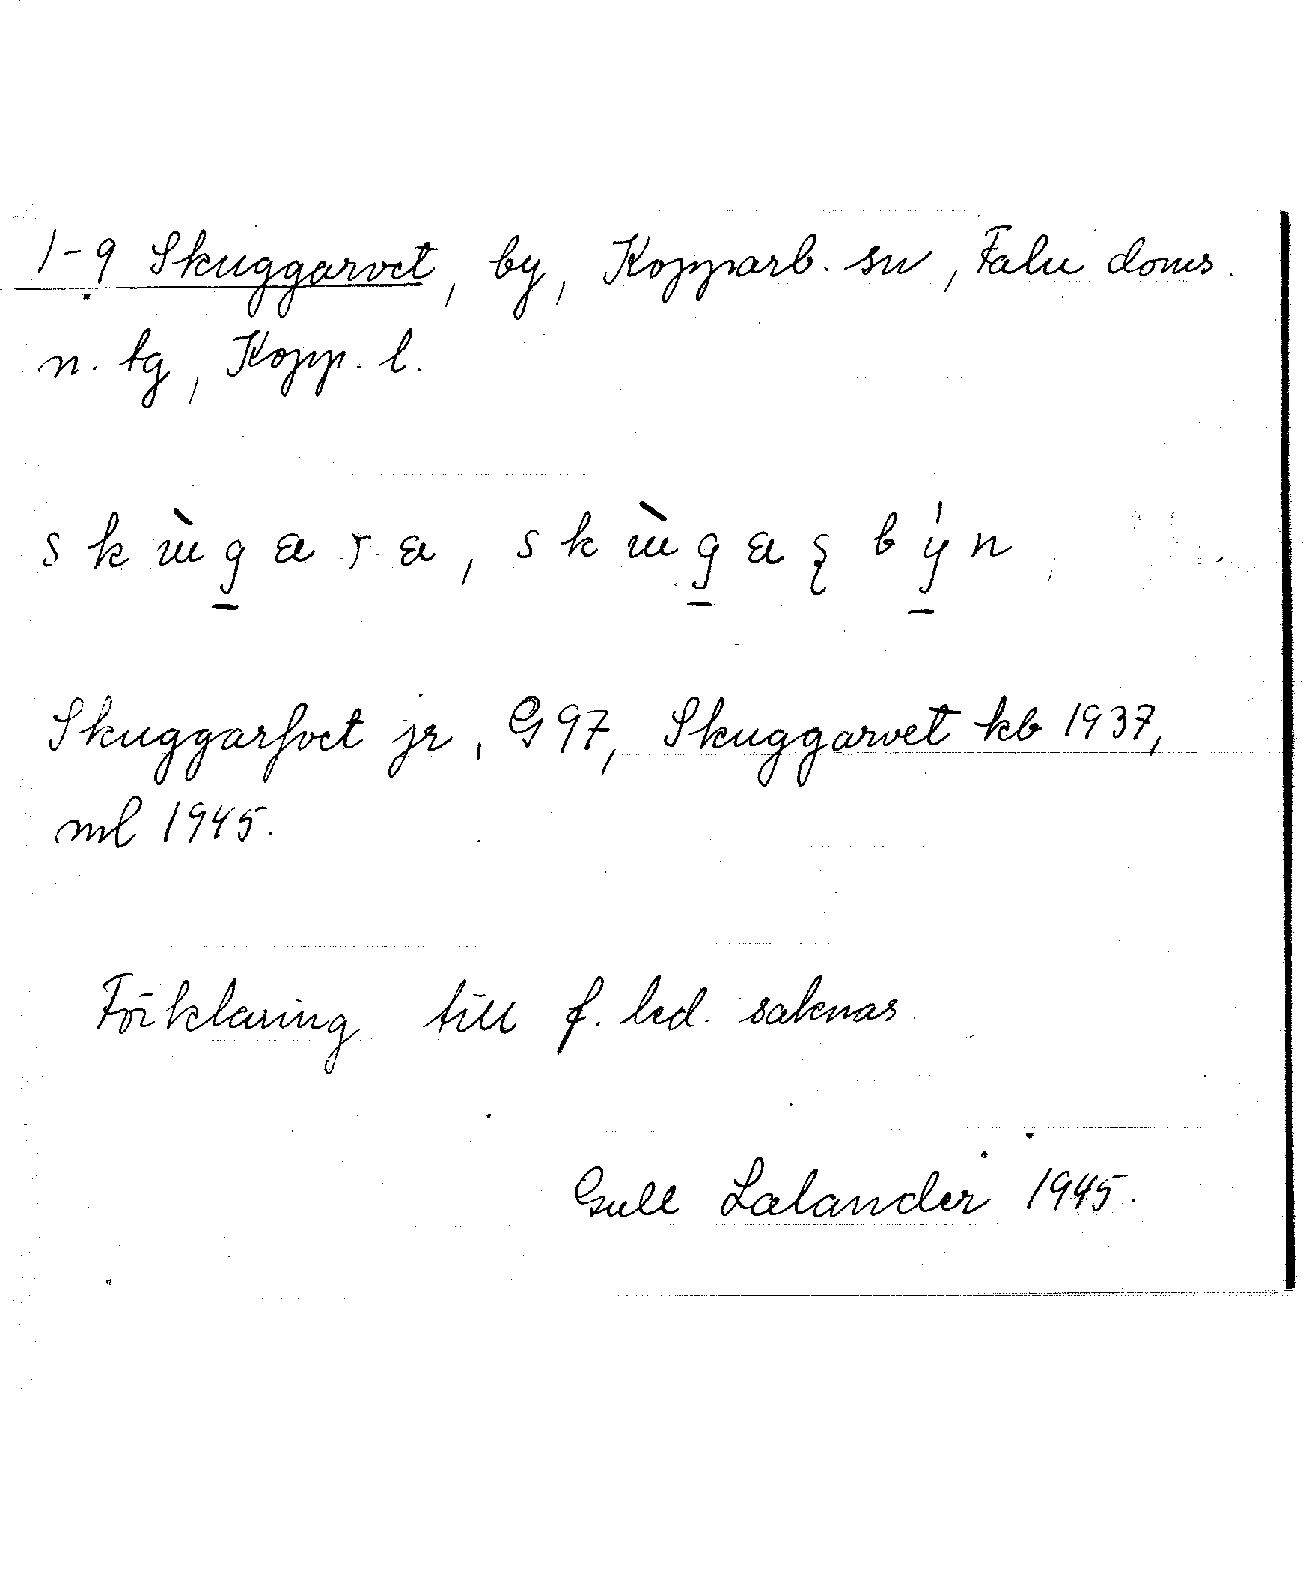 1-9 Skuggarvet, by, Kopparb. sn, Falu doms.
n. tg, Kopp. l.
s k ɯ̀ g̱ a r a, s k ɯ̀ g̱ a ʂ b ý̱ n
Skuggarfvet jr, G97, Skuggarvet kb 1937,
ml 1945.
Förklaring till f. led. saknas
Gull Lalander 1945.